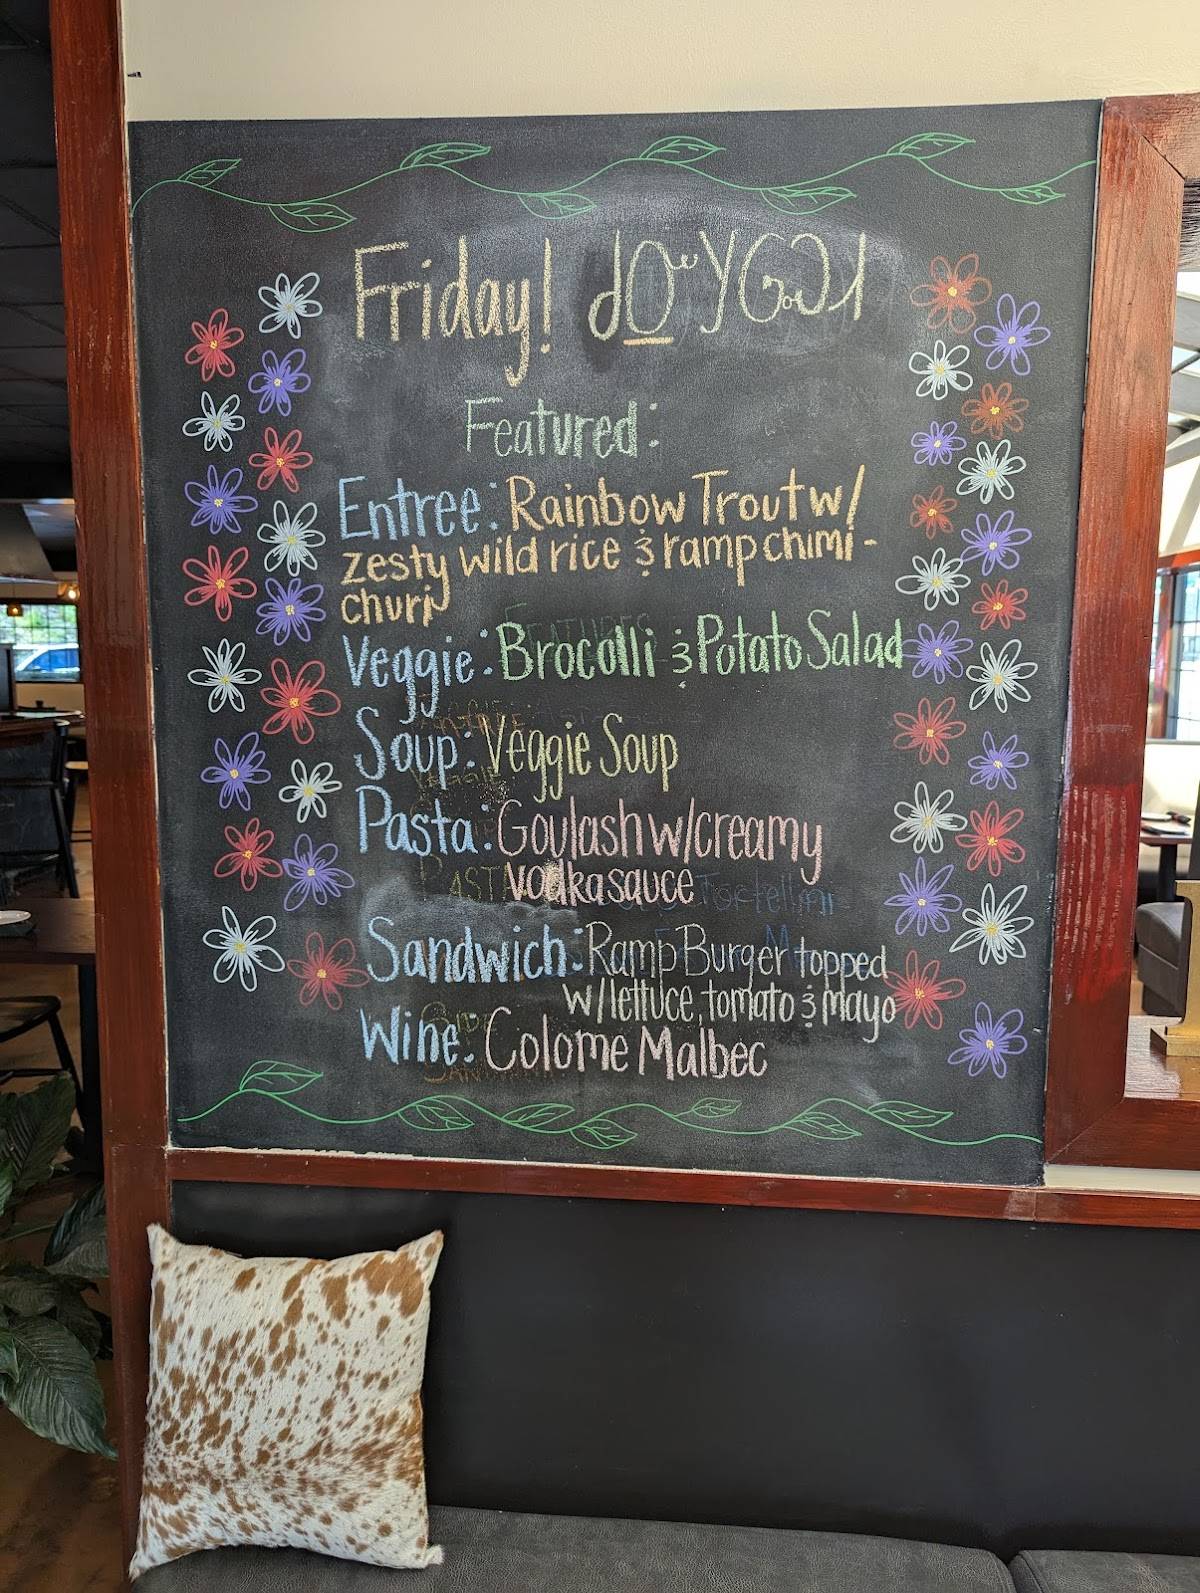 Friday!
Featured:
Entree: Rainbow Trout w/
zesty wild rice & ramp chimi-
churi
Veggie: Brocolli & Potato Salad
Soup: Veggie Soup
Pasta: Goulash w/creamy
vodka sauce
Sandwich: Ramp Burger topped
w/lettuce, tomato & mayo
Wine: Colome Malbec